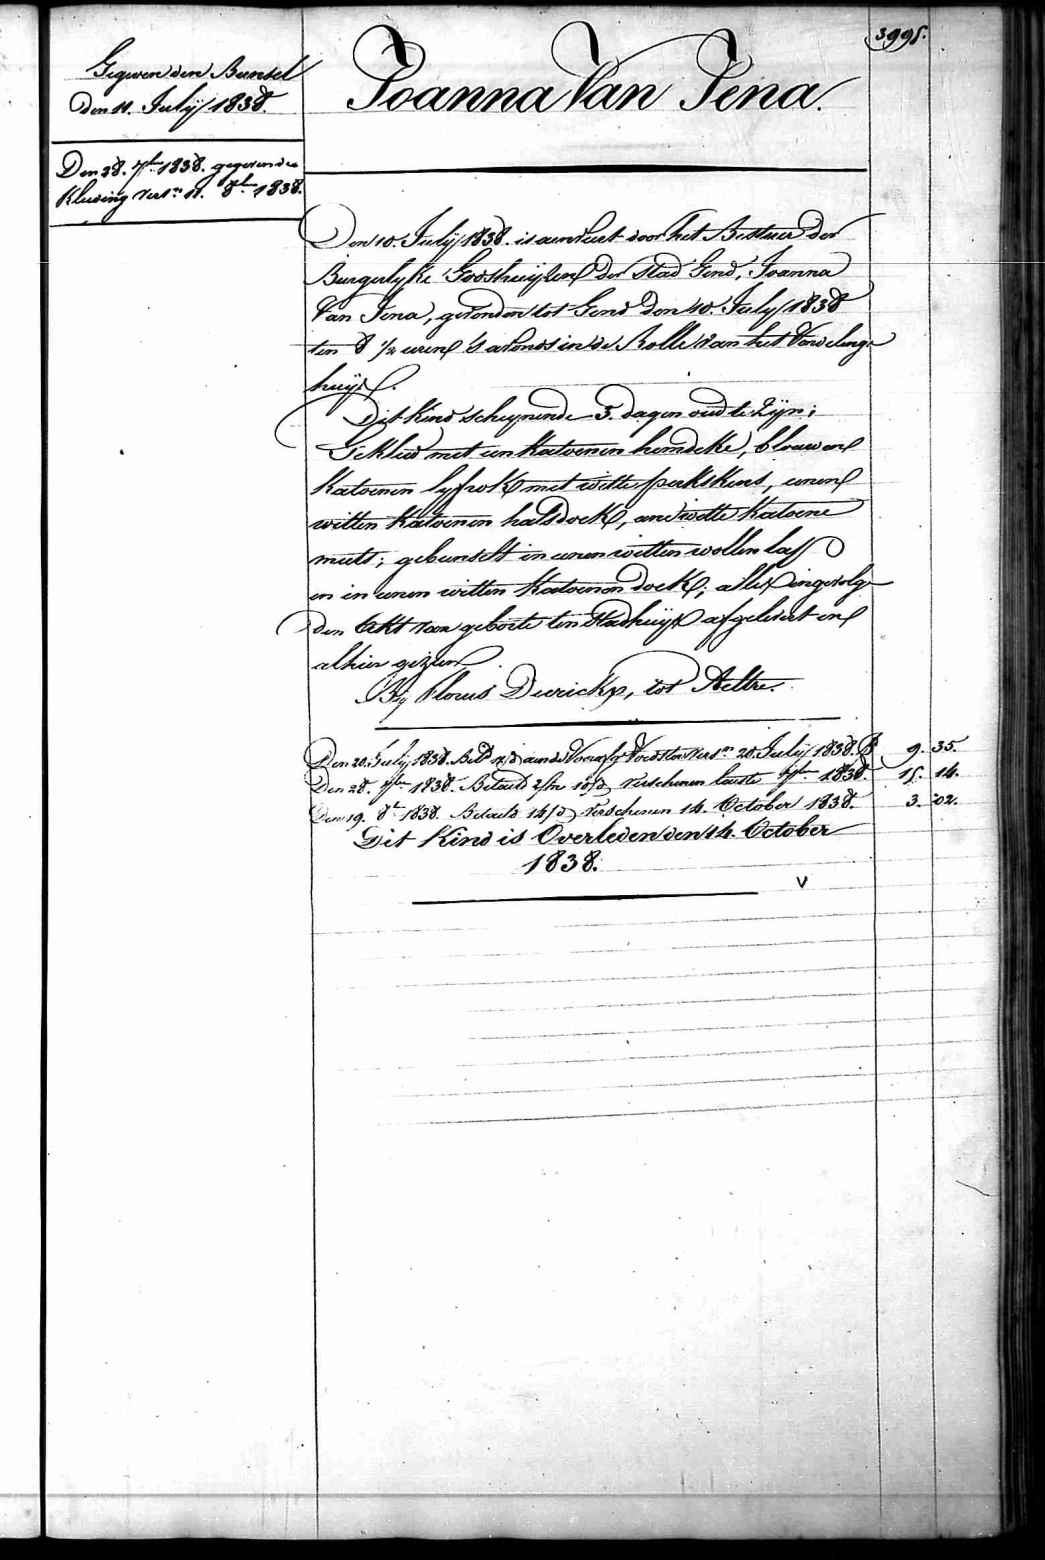 3995.
Joanna Van Jena.
Gegeven den Bunsel
den 11. July 1838.
Den 28. 7bre 1838. gegeven de
Kleeding vers.n 11. 8bre 1838.
Den 10. July 1838. is aenveert door het Bestuer der
Burgerlyke Godshuijzen der Stad Gend, Joanna
Van Jena, gevonden tot Gend den 10. July 1838
ten 8 1/2 uren 's avonds in de Rolle van het Vondelinge
huijs.
Dit kind schynende 3. dagen oud te zyn;
Gekleed met een katoenen hemdeke, blauwen
katoenen lyfrok met witte perkskens, eenen
witten katoenen halsdoek, eene witte katoene
muts; gebunselt in eenen witten wollen lap
en in eenen witten katoenen doek; alles ingevolge
den Akt van geboorte ten Stadhuijse afgelevert en
alhier gezien.
By Florus Dierickx, tot Aeltre.
Den 20. July 1838. Bet.d aen de Voorzorge Voedster vers.n 20. July 1838.
Den 28. 7bre 1838. Betaeld verschenen laeste 7bre 1838.
Den 19. 8bre 1838. Betaeld 14/d verschenen 14. October 1838.
9. 35.
15. 14.
3. 02.
Dit Kind is Overleden den 14. October
1838.
V